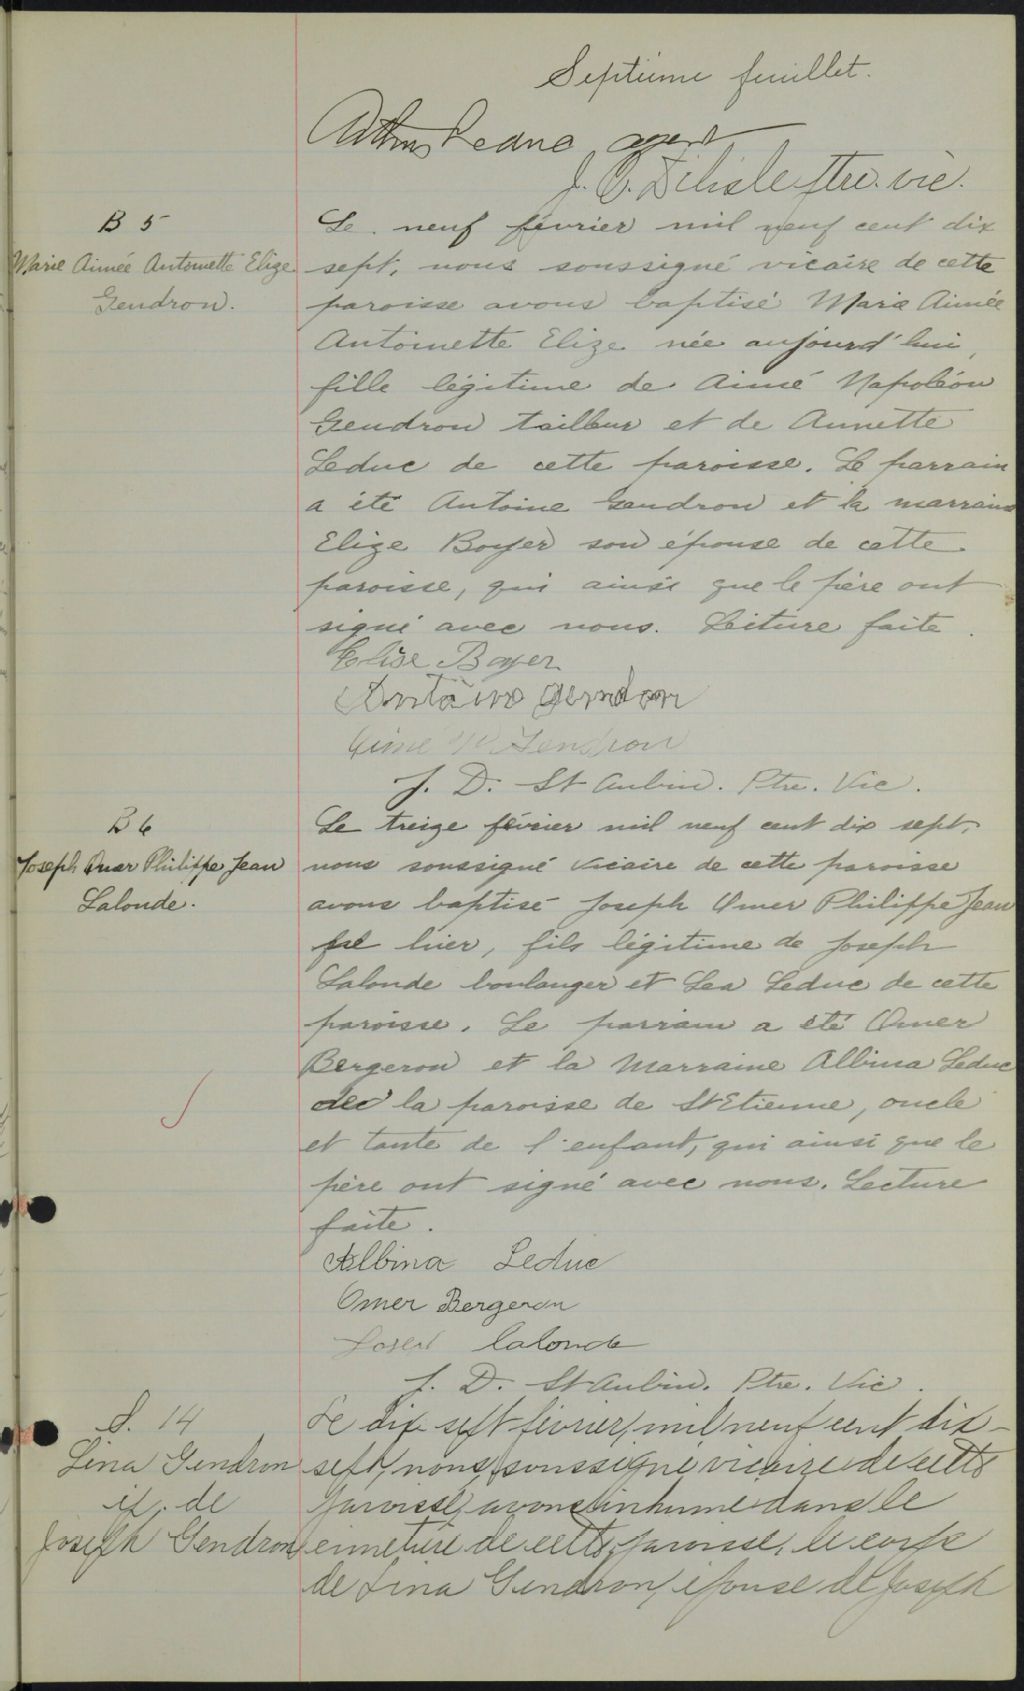 Septième feuillet.
J. O. Delisle ptre. vic.
B 5
Marie Aimée Antoinette Elize
Gendron.
Le neuf février mil neuf cent dix
sept, nous soussigné vicaire de cette
paroisse avons baptisé Marie Aimée
Antoinette Elize née aujourd'hui,
fille légitime de Aimé Napoléon
Gendron tailleur et de Annette
Leduc de cette paroisse. Le parrain
a été Antoine Gendron et la marraine
Elize Boyer son épouse de cette
paroisse, qui ainsi que le père ont
signé avec nous. Lecture faite.
Elise Boyer
Antoine Gendron
Aimé N Gendron
J. D. St Aubin. Ptre. Vic.
B 6
Joseph Omer Philippe Jean
Lalonde.
Le treize février mil neuf cent dix sept,
nous soussigné vicaire de cette paroisse
avons baptisé Joseph Omer Philippe Jean
né hier, fils légitime de Joseph
Lalonde boulanger et Lea Leduc de cette
paroisse. Le parrain a été Omer
Bergeron et la Marraine Albina Leduc
de la paroisse de St Etienne, oncle
et tante de l'enfant, qui ainsi que le
père ont signé avec nous. Lecture
faite.
Albina Leduc
Omer Bergeron
Joseph Lalonde
J. D. St Aubin. Ptre. Vic.
S. 14
Lina Gendron
ép. de
Joseph Gendron
Le dix sept février, mil neuf cent dix-
sept, nous, soussigné vicaire de cette
paroisse, avons inhumé dans le
cimetière de cette paroisse, le corps
de Lina Gendron, épouse de Joseph